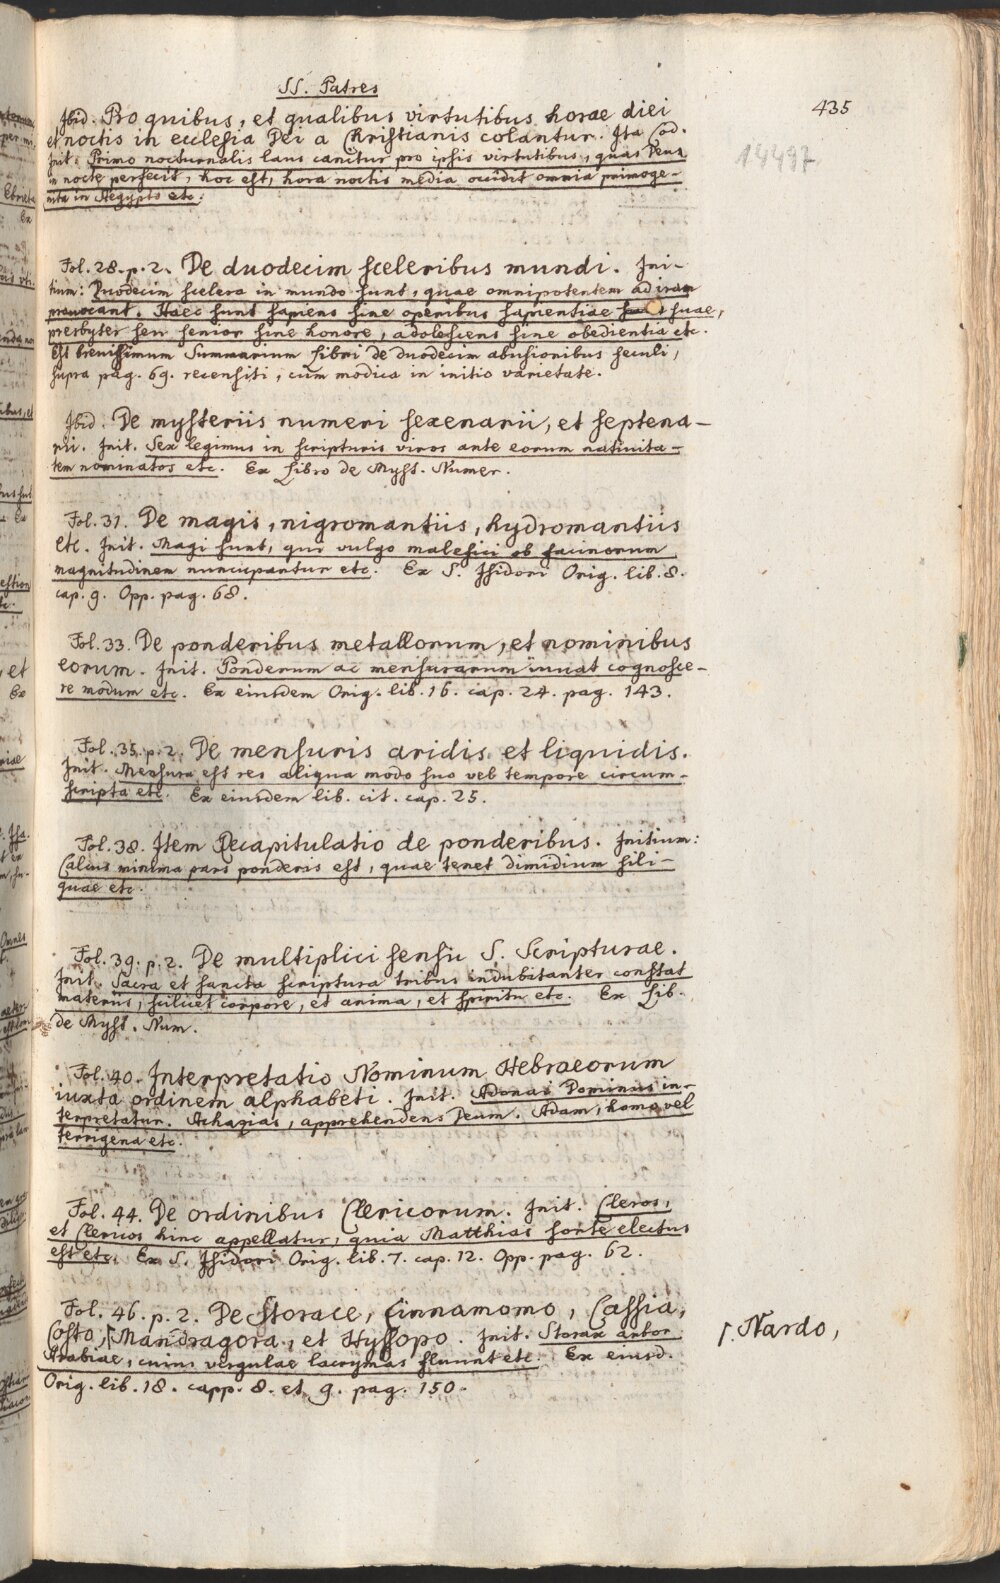 SS. Patres
435
14497
Ibid. Pro quibus, et qualibus virtutibus horae diei
et noctis in ecclesia Dei a Christianis colantur. Ita Cod.
Init. Primo nocturnalis laus canitur pro ipsis virtutibus, quas Deus
in nocte perfecit, hoc est, hora noctis media occidit omnia primoge-
nita in Aegypto etc.
Fol. 28. p. 2. De duodecim sceleribus mundi. Ini-
tium: Duodecim scelera in mundo sunt, quae omnipotentem ad iram
provocant. Haec sunt sapiens sine operibus sapientiae suae,
presbyter seu senior sine honore, adolescens sine obedientia etc.
Est brevissimum Summarium libri de duodecim abusionibus seculi,
supra pag. 69. recensiti, cum modica in initio varietate.
Ibid. De mysteriis numeri sexenarii, et septena-
rii. Init. Sex legimus in scripturis viros ante eorum nativita-
tem nominatos etc. Ex Libro de Myst. Numer.
Fol. 31. De magis, nigromantiis, hydromantiis
etc. Init. Magi sunt, qui vulgo malefici ob facinorum
magnitudinem nuncupantur etc. Ex S. Isidori Orig. lib. 8.
cap. 9. Opp. pag. 68.
Fol. 33. De ponderibus metallorum, et nominibus
eorum. Init. Ponderum ac mensurarum iuuat cognosce-
re modum etc. Ex eiusdem Orig. lib. 16. cap. 24. pag. 143.
Fol. 35. p. 2. De mensuris aridis et liquidis.
Init. Mensura est res aliqua modo suo vel tempore circum-
scripta etc. Ex eiusdem lib. cit. cap. 25.
Fol. 38. Item Recapitulatio de ponderibus. Initium:
Calcus minima pars ponderis est, quae tenet dimidium sili-
quae etc.
Fol. 39. p. 2. De multiplici sensu S. Scripturae.
Init. Sacra et sancta scriptura tribus indubitanter constat
materiis, scilicet corpore, et anima, et spiritu etc. Ex Lib.
de Myst. Num.
Fol. 40. Interpretatio Nominum Hebraeorum
iuxta ordinem alphabeti. Init. Adonai Dominus in-
terpretatur. Achazias, apprehendens Deum. Adam, homo vel
terrigena etc.
Fol. 44. De ordinibus Clericorum. Init. Cleros,
et Clericos hinc appellatur, quia Matthias sorte electus
est etc. Ex S. Isidori Orig. lib. 7. cap. 12. Opp. pag. 62.
Fol. 46. p. 2. De Storace, Cinnamomo, Cassia,
Costo, Γ Mandragora, et Hyssopo. Init. Storax arbor
Γ. Nardo,
Arabiae, cuius virgulae lacrymas fluunt etc. Ex eiusd.
Orig. lib. 18. capp. 8. et 9. pag. 150.